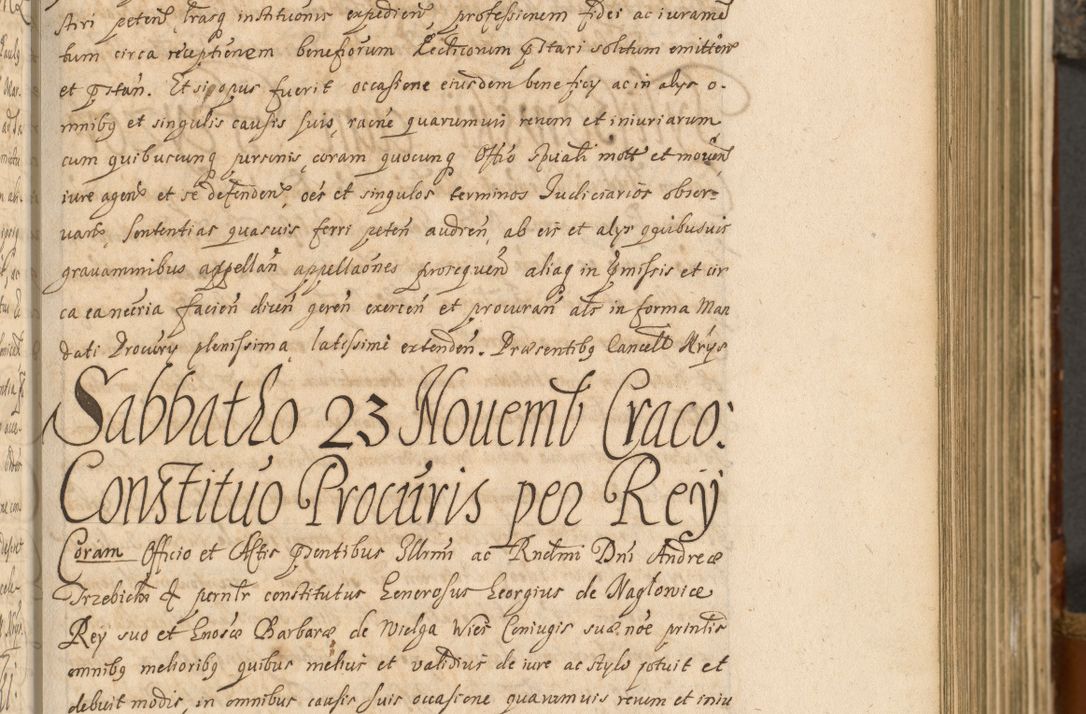 stiri peten̄ trasq institutionis expedien̄ professionem fidei ac iuramē
tum circa receptionem beneficiorum Lecticorum p̄stari solitum emitten̄
et p̄stan̄. Et si opus fuerit occasione eiusdem beneficij ac in alijs o-
mnibq et singulis causis suis, racne quarumuis rerum et iniuriarum
cum quibuscunq personis, coram quocunq Offo spuali mott et mouen̄
iure agen̄ et se defenden̄, oēs et singulos terminos Iudiciarios obser-
uare, sententias quasuis ferri peten̄ audren̄, ab eis et alijs qquibusuis
grauaminibus appellan̄ appellaōnes prosequen̄ aliaq in p̄missis et cir
ca ea necria facien̄ dicen̄ geren̄ exercen̄ et procuran̄ als in forma Man
dati Procurij plenissima, latissime extenden̄. Præsentibq Cancell Nrijs
Sabbatho 23 Nouemb Craco:
Constituo Procuris per Reij
Coram Officio et Actis p̄sentibus Illrmi ac Rndmi Dni Andreæ
Trzebicki & persnlr constitutus Generosus Georgius de Nagłowice
Rey suo et Gnosæ Barbaræ de Wielga Wies Coniugis suæ noe prntis
omnibq melioribq quibus melius et validius de iure ac stylo potuit et
debuit modis, in omnibus causis suis occasione quarumuis rerum et iniu